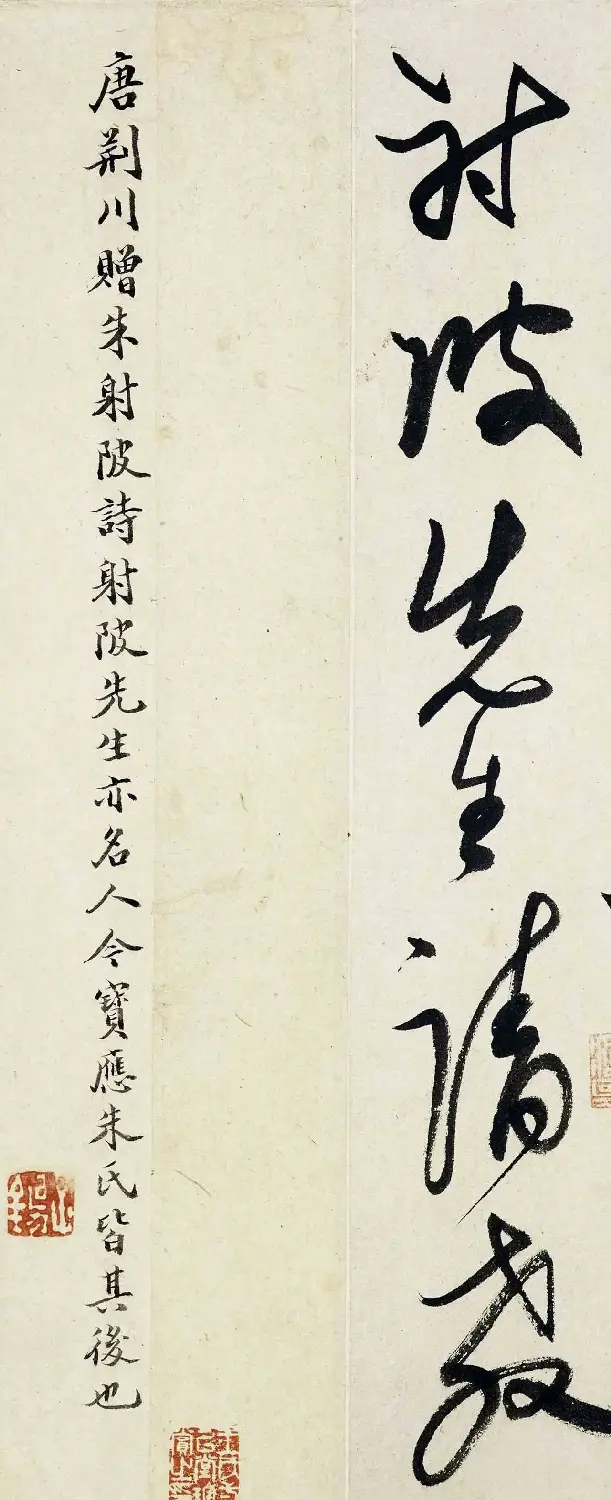 射陂先生請教
唐荊川贈朱射陂詩射陂先生亦名人今寶應朱氏皆其後也